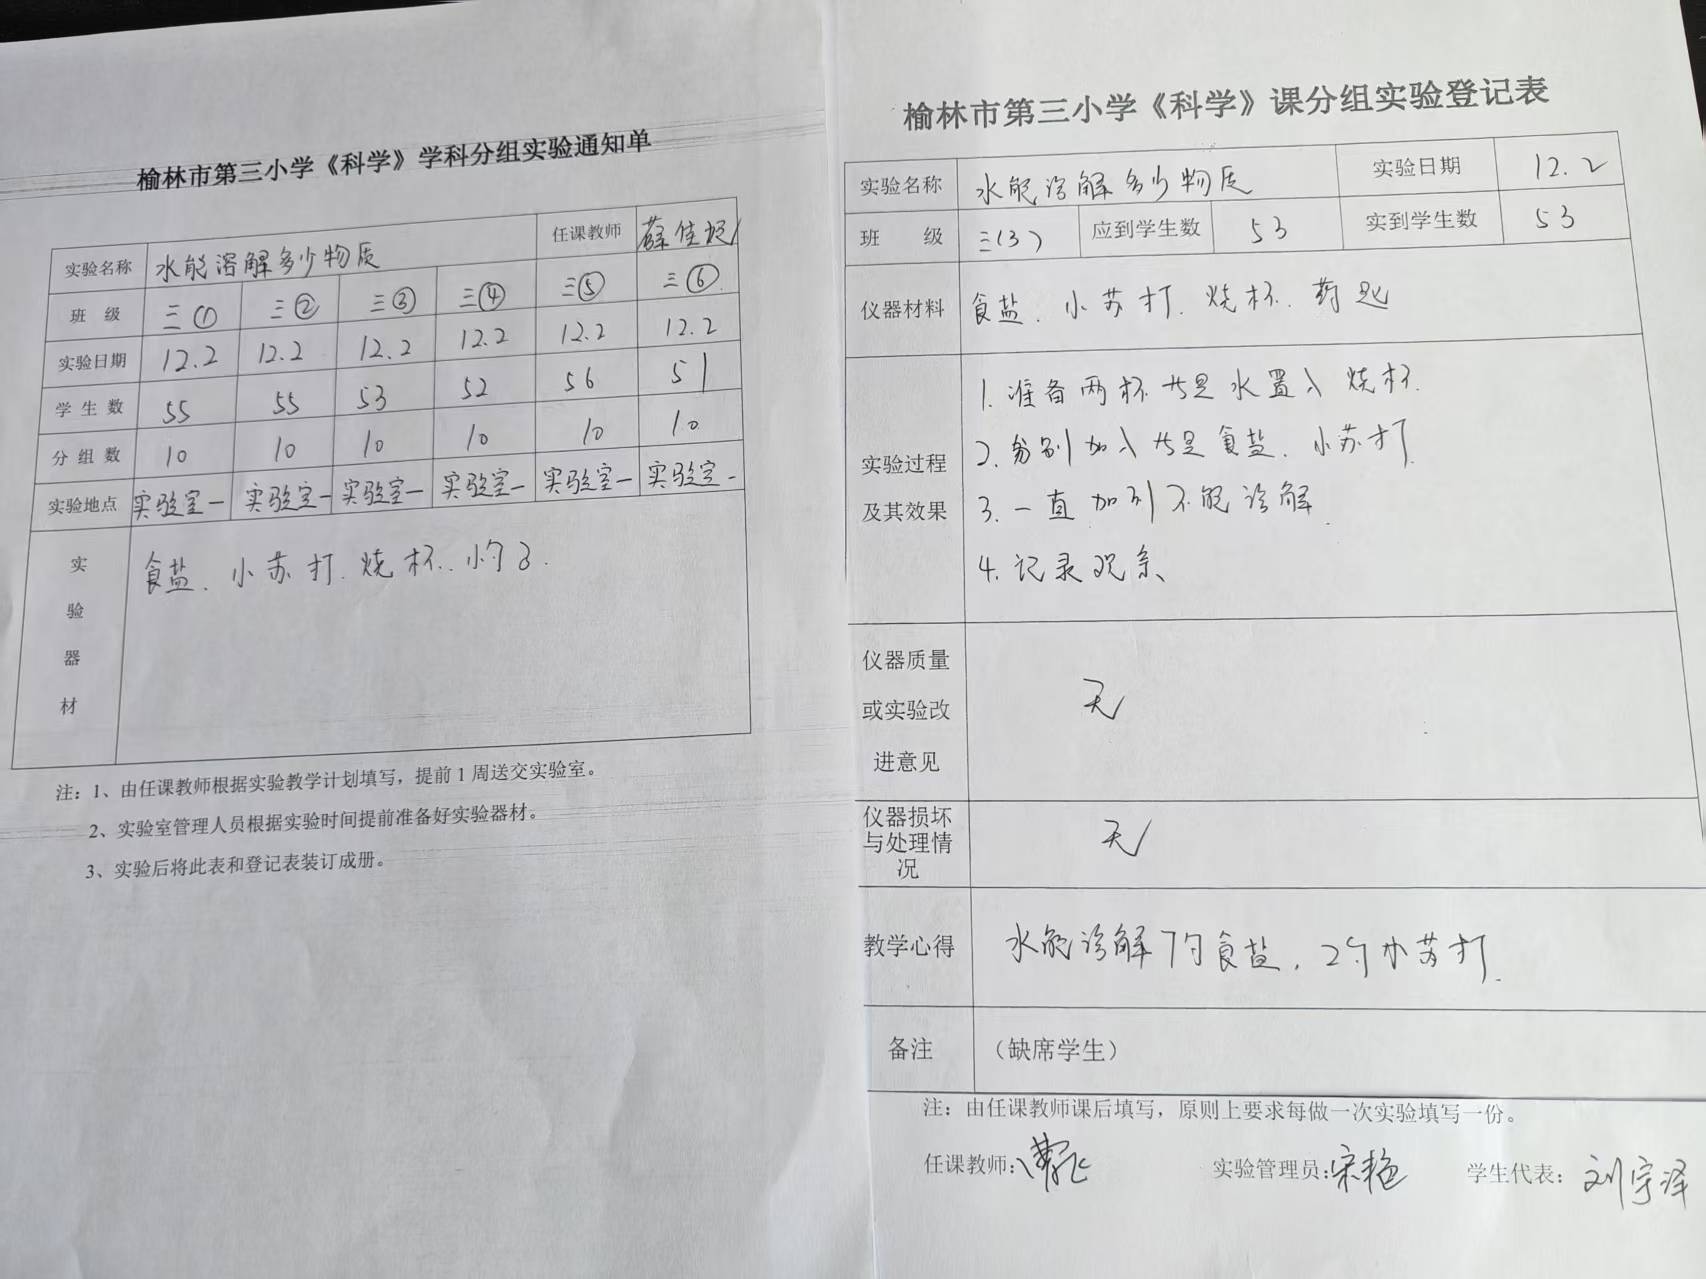 榆林市第三小学《科学》学科分组实验通知单
实验名称 水能溶解多少物质 任课教师
班 级 三① 三② 三③ 三④ 三⑤ 三⑥
实验日期 12.2 12.2 12.2 12.2 12.2 12.2
学生数 55 55 53 52 56 51
分组数 10 10 10 10 10 10
实验地点 实验室一 实验室一 实验室一 实验室一 实验室一 实验室一
实验器材 食盐、小苏打、烧杯、小勺
注：1、由任课教师根据实验教学计划填写，提前1周送交实验室。
2、实验室管理人员根据实验时间提前准备好实验器材。
3、实验后将此表和登记表装订成册。
榆林市第三小学《科学》课分组实验登记表
实验名称 水能溶解多少物质 实验日期 12.2
班 级 三(3) 应到学生数 53 实到学生数 53
仪器材料 食盐、小苏打、烧杯、药匙
实验过程及其效果
1. 准备两杯等量水置入烧杯.
2. 分别加入等量食盐、小苏打.
3. 一直加到不能溶解.
4. 记录现象
仪器质量或实验改进意见 无
仪器损坏与处理情况 无
教学心得 水能溶解7勺食盐，2勺小苏打.
备注 （缺席学生）
注：由任课教师课后填写，原则上要求每做一次实验填写一份。
任课教师： 实验管理员：宋艳 学生代表：刘宇泽